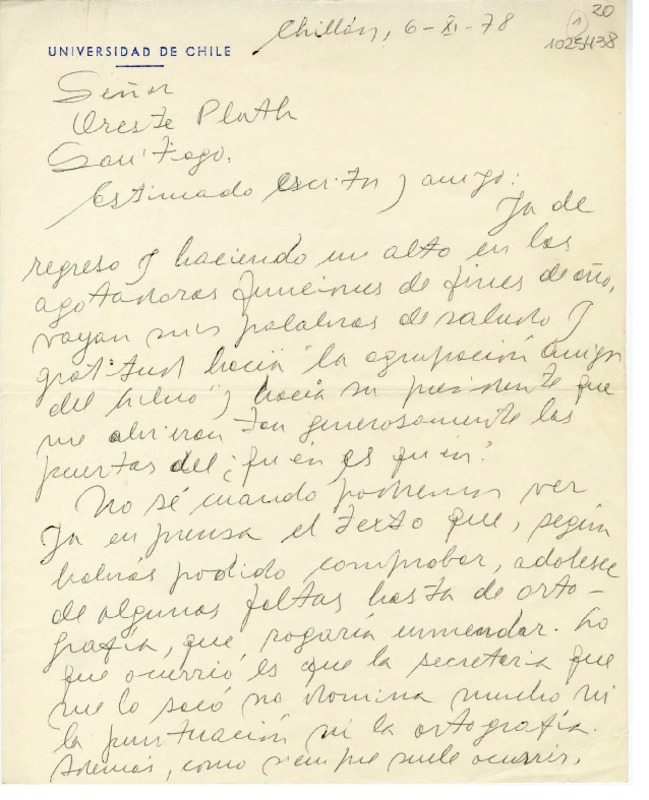 20
1
1025438
Chillán, 6-XI-78
UNIVERSIDAD DE CHILE
Señor
Oreste Plath
Santiago.
Estimado escritor y amigo:
Ya de
regreso y haciendo un alto en las
agotadoras funciones de fines de año,
vayan mis palabras de saludo y
gratitud hacia "la agrupación amigos
del libro" y hacia su presidente que
me abrieron tan generosamente las
puertas del ¿quién es quién?
No sé cuando podremos ver
ya en prensa el texto que, según
habrás podido comprobar, adolece
de algunas faltas hasta de orto-
grafía, que rogaría enmendar. Lo
que ocurrió es que la secretaria que
me lo sacó no domina mucho ni
la puntuación ni la ortografía.
Además, como siempre suele ocurrir,